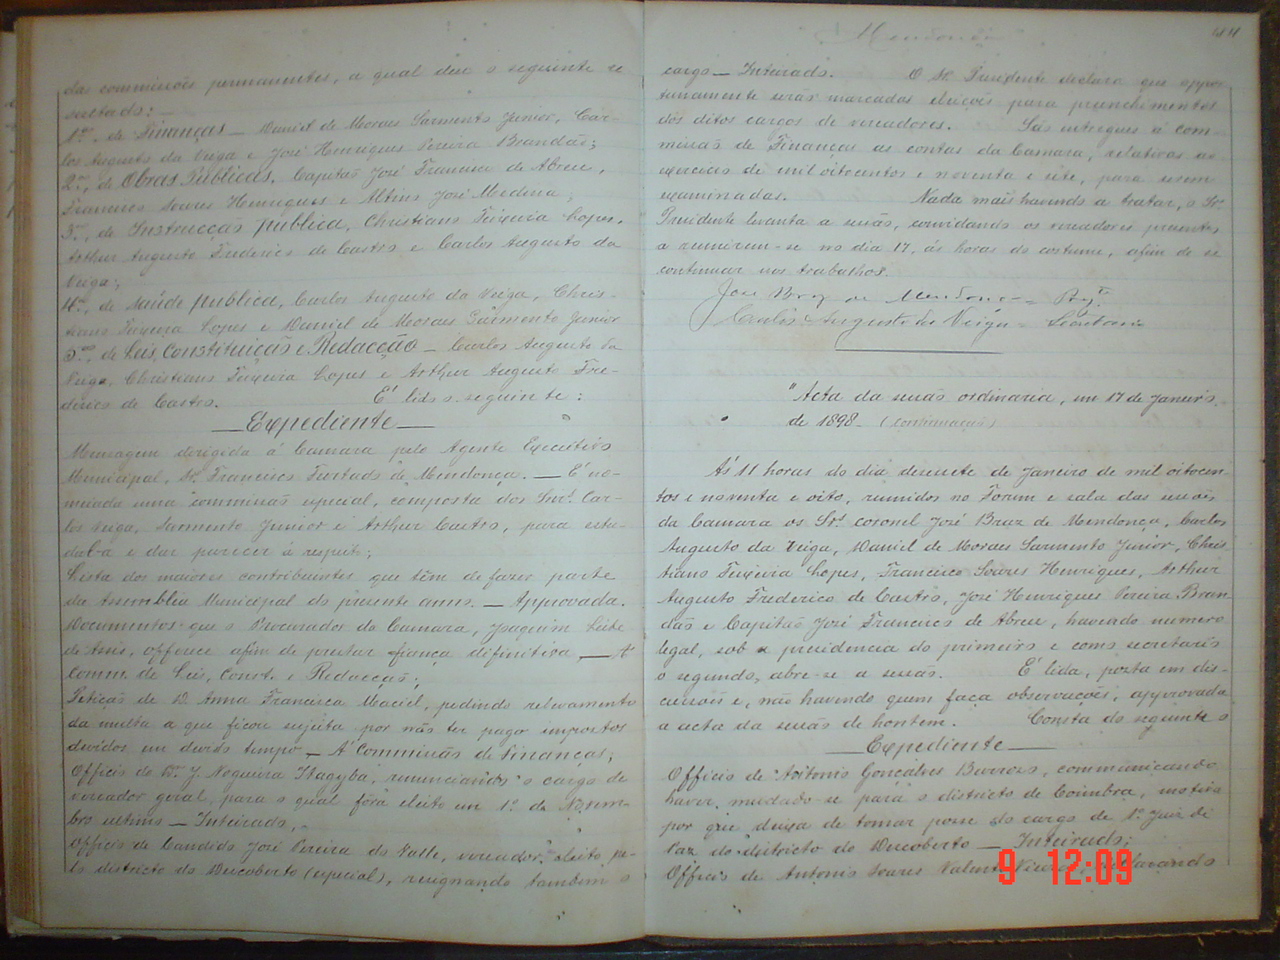 das commissões permanentes, a qual deu o seguinte re
sultado: —
1ª, de Finanças — Daniel de Moraes Sarmento Junior, Car-
los Augusto da Veiga e José Henriques Pereira Brandão;
2ª, de Obras Publicas, Capitão José Francisco de Abreu,
Francisco Soares Henriques e Altino José Medina;
3ª, de Instrucção publica, Christiano Teixeira Lopes,
Arthur Augusto Frederico de Castro e Carlos Augusto da
Veiga;
4ª, de saúde publica, Carlos Augusto da Veiga, Chris-
tiano Teixeira Lopes e Daniel de Moraes Sarmento Junior
5ª, de Leis, Constituição e Redacção — Carlos Augusto da
Veiga, Christiano Teixeira Lopes e Arthur Augusto Fre-
derico de Castro. É lido o seguinte:
— Expediente —
Mensagem dirigida á Camara pelo Agente Executivo
Municipal, Sr. Francisco Furtado de Mendonça. — É no-
meiada uma commissão especial, composta dos Snrs. Car-
los Veiga, Sarmento Junior e Arthur Castro, para estu-
dal-a e dar parecer á respeito;
Lista dos maiores contribuintes que têm de fazer parte
da Assembléa Municipal do presente anno. — Approvada.
Documentos que o Procurador da Camara, Joaquim Leite
de Assis, offerece afim de prestar fiança difinitiva, — Á
Comm. de Leis, Const. e Redacção;
Petição de D Anna Francisca Maciel, pedindo relevamento
da multa a que ficou sujeita por não ter pago impostos
devidos em devido tempo — Á Commissão de Finanças;
Officio do Dr. J. Nogueira Itagyba, renunciando o cargo de
vereador geral, para o qual fôra eleito em 1º de Novem-
bro ultimo — Inteirada, —
Officio de Candido José Pereira do Valle, vereador eleito, pe-
lo districto do Descoberto (especial), resignando tambem o
Mendonça
44
cargo — Inteirada. O Sr. Presidente declara que oppor
tunamente serão marcadas eleições para prehenchimentos
dos ditos cargos de vereadores. São entregues á com-
missão de Finanças as contas da Camara, relativas ao
exercicio de mil oitocentos e noventa e sete, para serem
examinadas. Nada mais havendo a tratar, o Sr.
Presidente levanta a sessão, convidando os vereadores presentes
a reunirem-se no dia 17, ás horas do costume, afim de se
continuar nos trabalhos.
José Braz de Mendonça — Presidte.
Carlos Augusto da Veiga — Secretario
"Acta da sessão ordinaria, em 17 de Janeiro
de 1898 — (continuação)
Ás 11 horas do dia desesete de Janeiro de mil oitocen-
tos e noventa e oito, reunidos no Forum e sala das sessões
da Camara os Srs. coronel José Braz de Mendonça, Carlos
Augusto da Veiga, Daniel de Moraes Sarmento Junior, Chris
tiano Teixeira Lopes, Francisco Soares Henriques, Arthur
Augusto Frederico de Castro, José Henriques Pereira Bran
dão e Capitão José Francisco de Abreu, havendo numero
legal, sob a presidencia do primeiro e como secretario
o segundo, abre-se a sessão. É lida, posta em dis-
cussão e, não havendo quem faça observações, approvada
a acta da sessão de hontem. Consta do seguinte o
— Expediente —
Officio de Antonio Gonçalves Barroso, communicando
haver mudado-se para o districto de Coimbra, motivo
por que deixa de tomar posse do cargo de 1º Juiz de
Paz do districto do Descoberto — Inteirada;
Officio de Antonio Soares Valente declarando
9 12:09